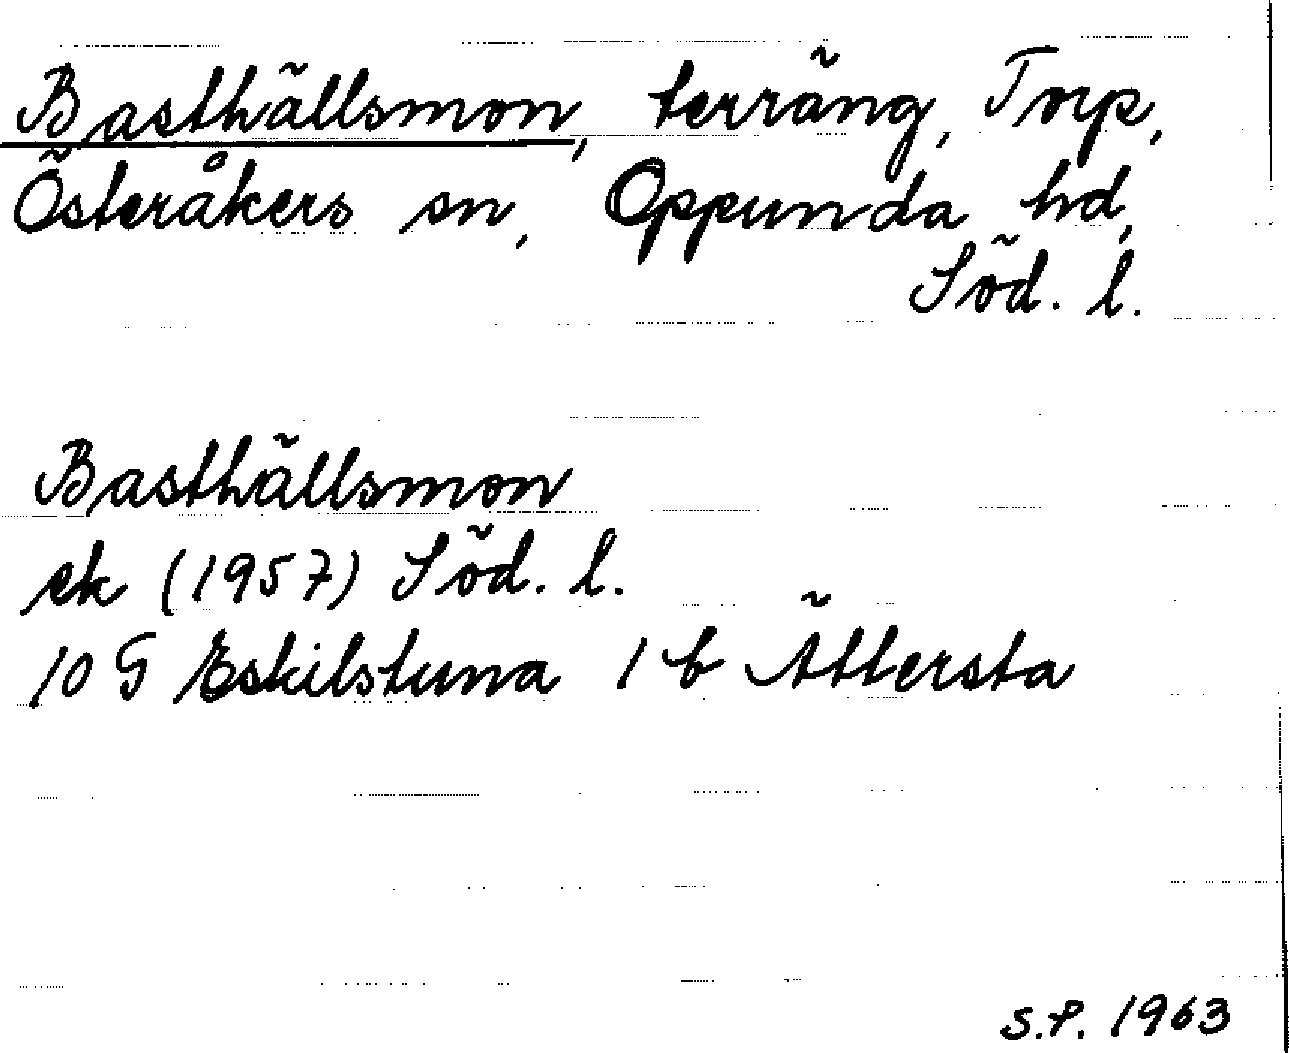 Basthällsmon, terräng, Torp,
Österåkers sn, Oppunda hd,
Söd. l.
Basthällsmon
ek (1957) Söd. l.
10 G Eskilstuna 1 b Ättersta
S.P. 1963